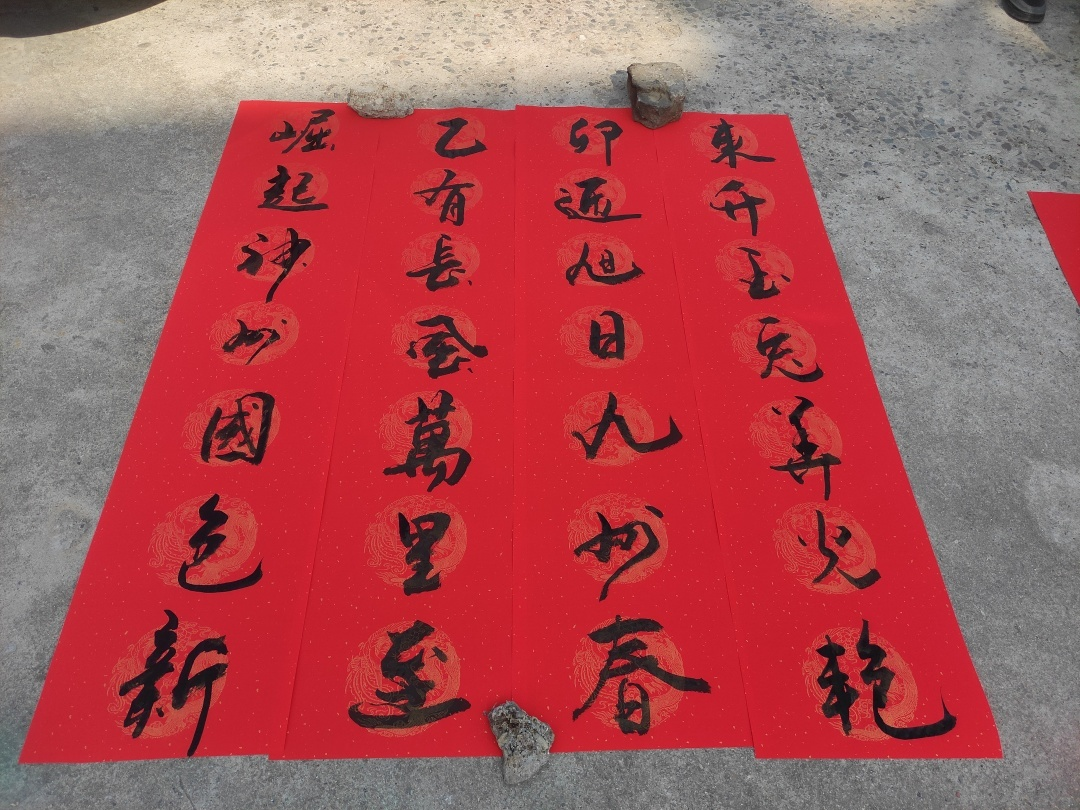 東升玉兔光艳
卯迎旭日九州春
乙有長風萬里
崛起神州國色新